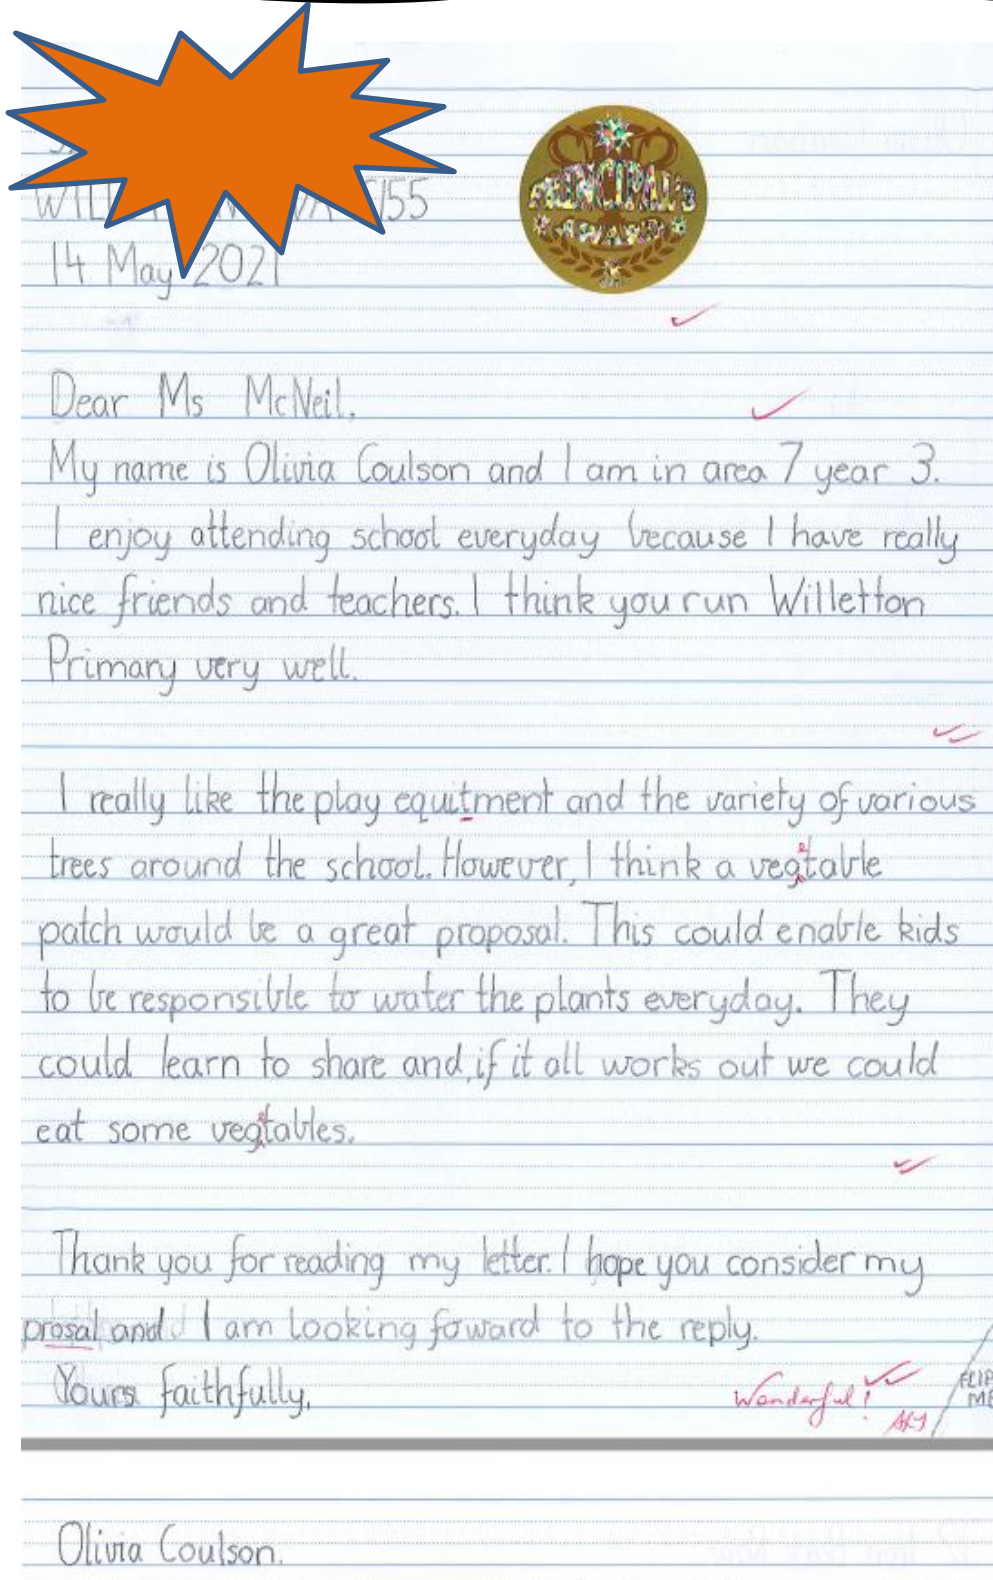 155
14 May 2021
PRINCIPAL'S
AWARD
Dear Ms McNeil.
My name is Olivia Coulson and I am in area 7 year 3.
I enjoy attending school everyday because I have really
nice friends and teachers. I think you run Willetton
Primary very well.
I really like the play equitment and the variety of various
trees around the school. However, I think a vegetable
patch would be a great proposal. This could enable kids
to be responsible to water the plants everyday. They
could learn to share and, if it all works out we could
eat some vegetables.
Thank you for reading my letter. I hope you consider my
prosal and I am looking foward to the reply.
Yours faithfully,
Wonderful!
FLIP
ME
Olivia Coulson.